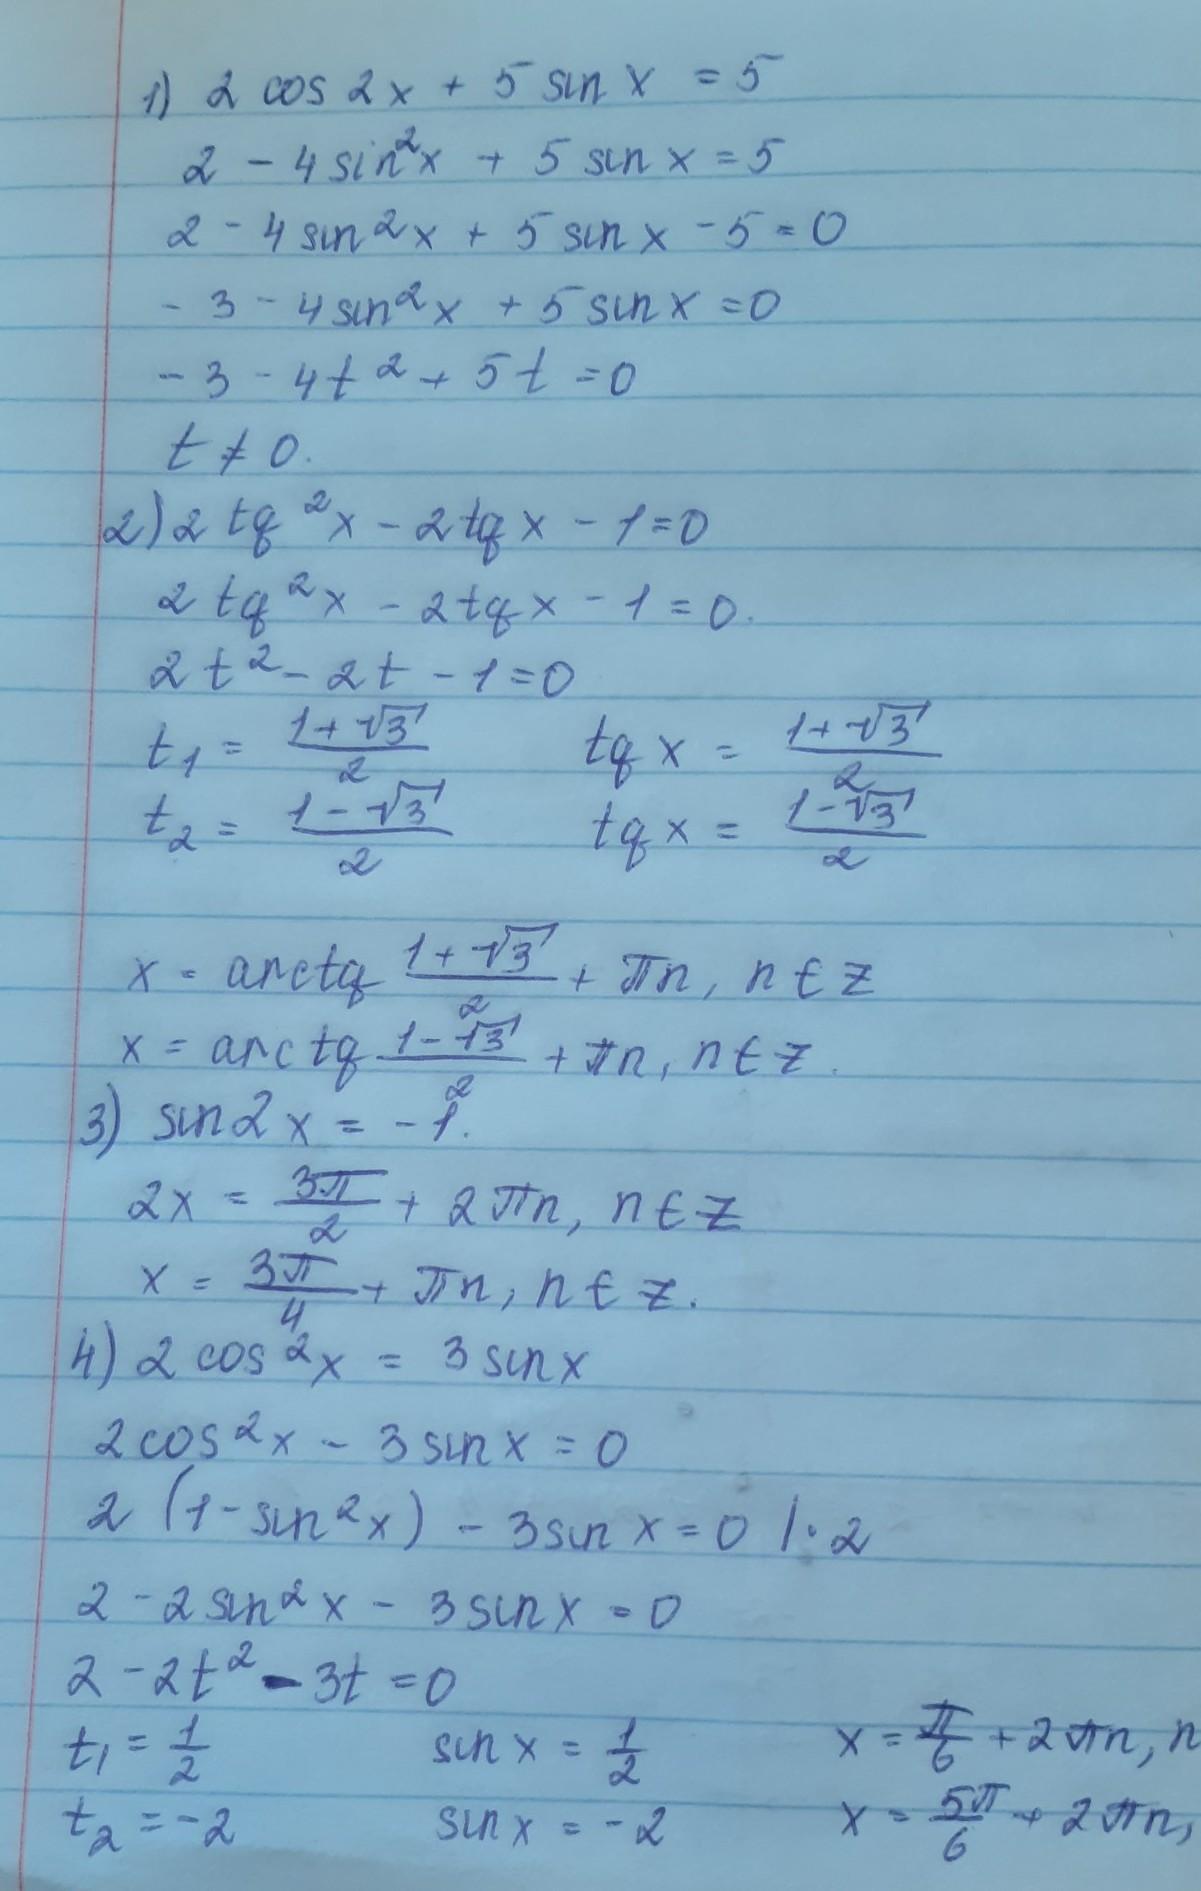 1) 2 cos 2x + 5 sin x = 5
2 - 4 sin²x + 5 sin x = 5
2 - 4 sin²x + 5 sin x - 5 = 0
- 3 - 4 sin²x + 5 sin x = 0
- 3 - 4t² + 5t = 0
t ≠ 0.
2) 2 tg²x - 2tg x - 1 = 0
2 tg²x - 2tg x - 1 = 0.
2t² - 2t - 1 = 0
t₁ = (1+√3)/2 tg x = (1+√3)/2
t₂ = (1-√3)/2 tg x = (1-√3)/2
x = arctg (1+√3)/2 + πn, n ∈ z
x = arctg (1-√3)/2 + πn, n ∈ z.
3) sin 2x = -1.
2x = 3π/2 + 2πn, n ∈ z
x = 3π/4 + πn, n ∈ z.
4) 2 cos²x = 3 sin x
2 cos²x - 3 sin x = 0
2 (1 - sin²x) - 3 sin x = 0 | · 2
2 - 2 sin²x - 3 sin x = 0
2 - 2t² - 3t = 0
t₁ = 1/2 sin x = 1/2 x = π/6 + 2πn, n
t₂ = -2 sin x = -2 x = 5π/6 + 2πn,